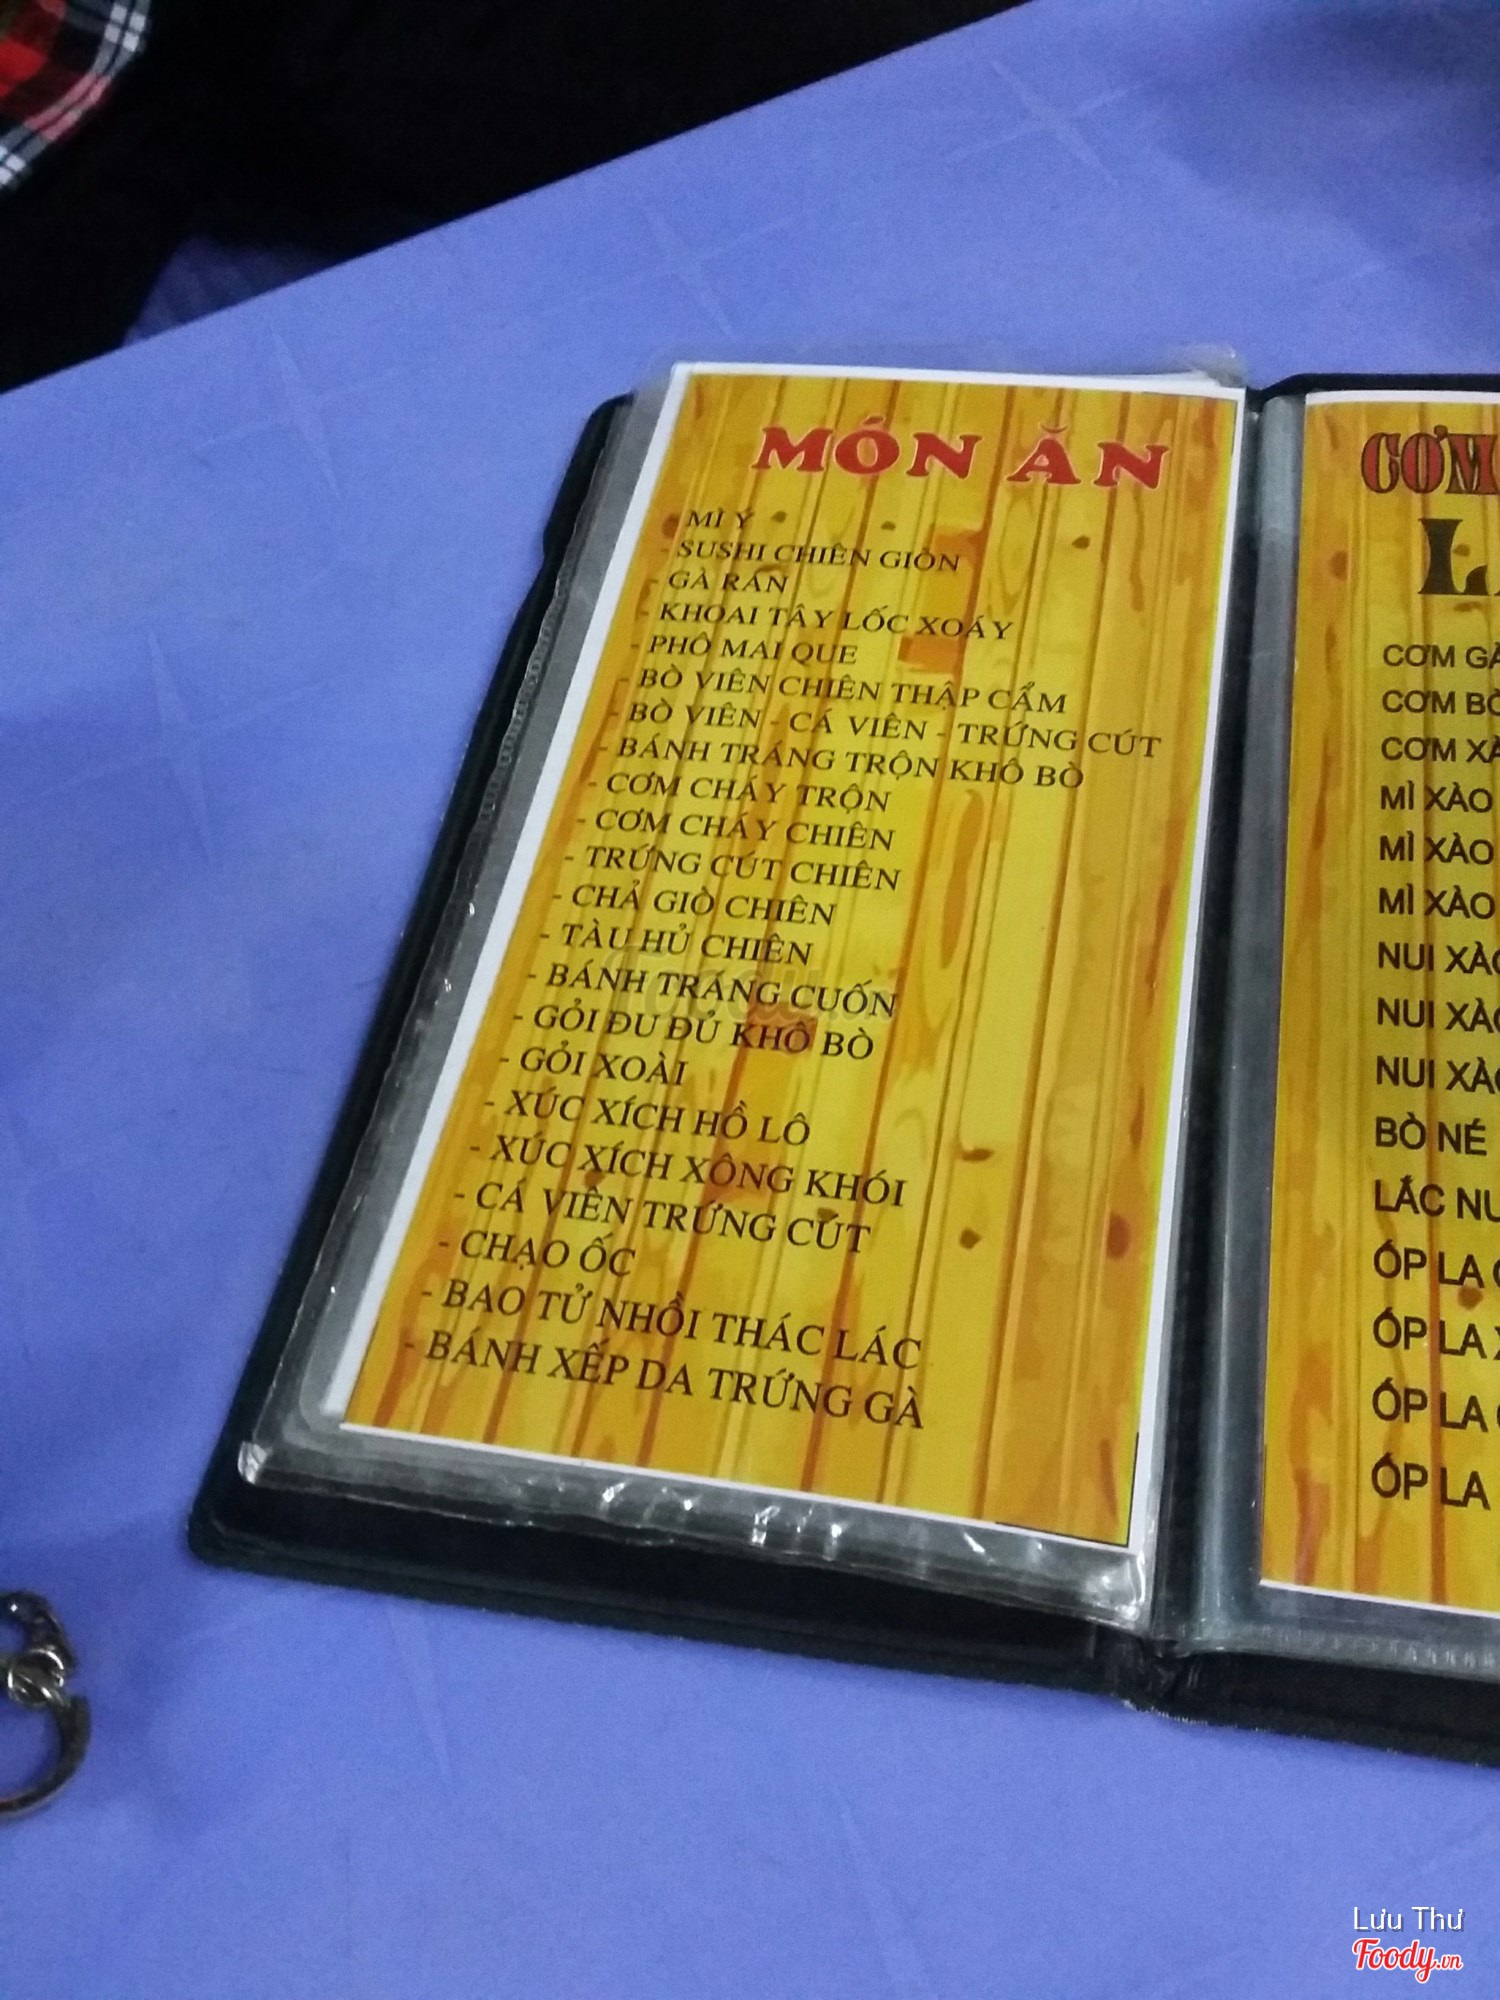 MÓN ĂN
MÌ Ý
- SUSHI CHIÊN GIÒN
- GÀ RÁN
- KHOAI TÂY LỐC XOÁY
- PHÔ MAI QUE
- BÒ VIÊN CHIÊN THẬP CẨM
- BÒ VIÊN - CÁ VIÊN - TRỨNG CÚT
- BÁNH TRÁNG TRỘN KHÔ BÒ
- CƠM CHÁY TRỘN
- CƠM CHÁY CHIÊN
- TRỨNG CÚT CHIÊN
- CHẢ GIÒ CHIÊN
- TÀU HỦ CHIÊN
- BÁNH TRÁNG CUỐN
- GỎI ĐU ĐỦ KHÔ BÒ
- GỎI XOÀI
- XÚC XÍCH HỒ LÔ
- XÚC XÍCH XÔNG KHÓI
- CÁ VIÊN TRỨNG CÚT
- CHẠO ỐC
- BAO TỬ NHỒI THÁC LÁC
- BÁNH XẾP DA TRỨNG GÀ
CƠM
CƠM GÀ
CƠM BÒ
CƠM
MÌ XÀO
MÌ XÀO
MÌ XÀO
NUI XÀO
NUI XÀO
NUI XÀO
BÒ NÉ
LẮC
ỐP LA
ỐP LA
ỐP LA
ỐP LA
Lưu Thư
Foody.vn